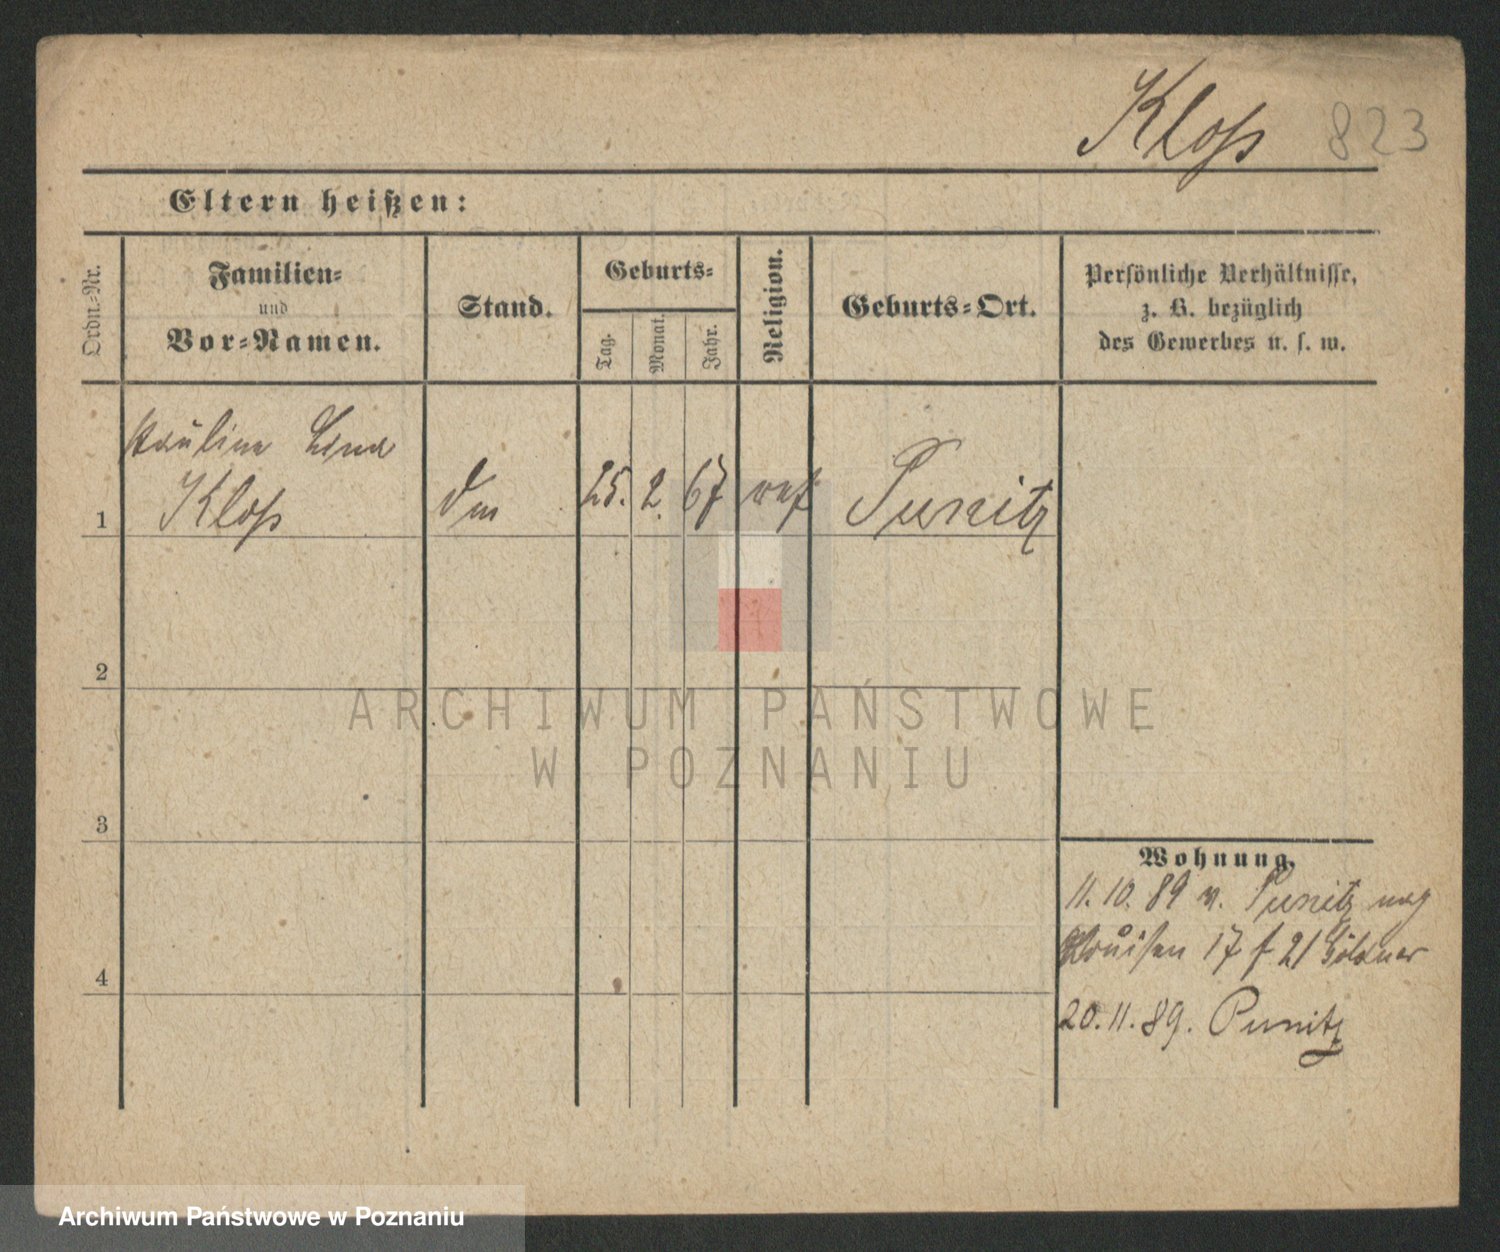 Kloß 823
Eltern heißen:
Ordn.-Nr.
Familien-
und
Vor-Namen.
Stand.
Geburts-
Tag.
Monat.
Jahr.
Religion.
Geburts-Ort.
Persönliche Verhältnisse,
z. B. bezüglich
des Gewerbes u. s. w.
Pauline
1 Kloß 25. 2. 67 Punitz
2
3
4
Wohnung.
11. 10. 89 v. Punitz
17 f 21
20. 11. 89. Punitz
ARCHIWUM PAŃSTWOWE
W POZNANIU
Archiwum Państwowe w Poznaniu